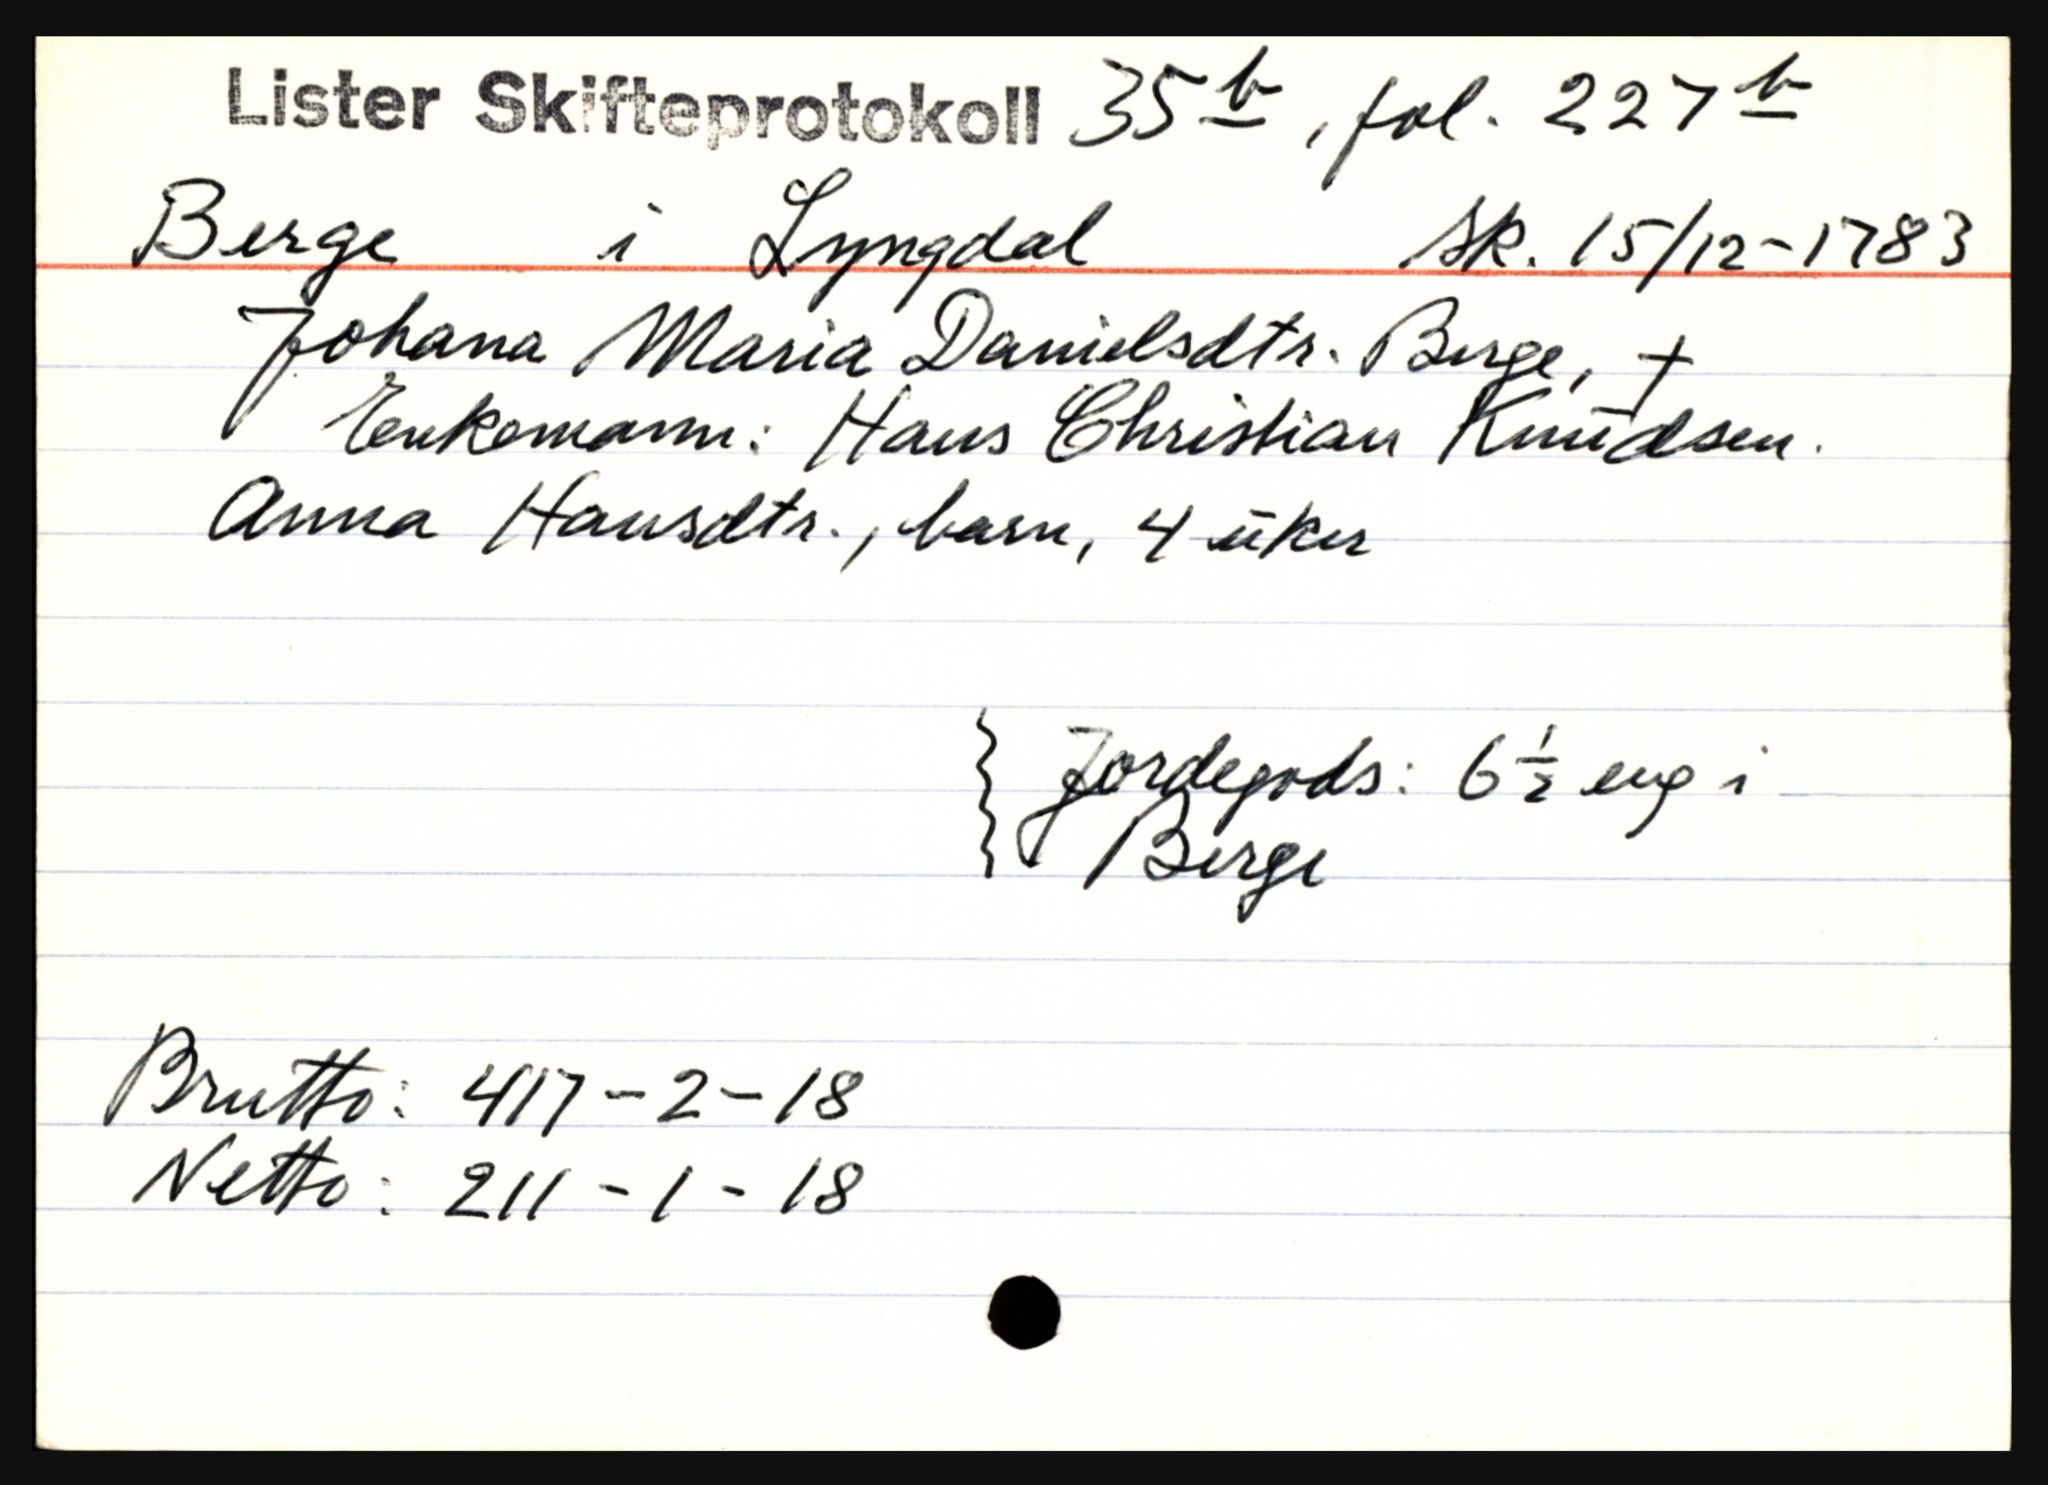 Lister Skifteprotokoll 35b, fol. 227b
Berge i Lyngdal sk. 15/12-1783
Johana Maria Danielsdtr. Berge, †
Enkemann: Hans Christian Knudsen.
Anna Hansdtr., barn, 4 uker
Jordegods: 6 1/2 eng i
Berge
Brutto: 417-2-18
Netto: 211-1-18